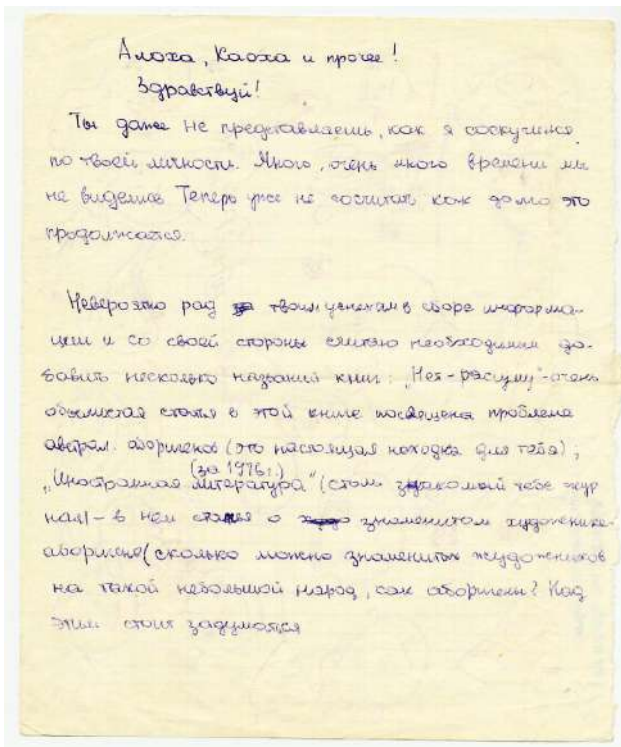 Алоха, Каоха и прочее!
Здравствуй!
Ты даже не представляешь, как я соскучился
по твоей личности. Много, очень много времени мы
не виделись Теперь уже не сосчитать как долго это
продолжается.
Невероятно рад за твоим успехам в сборе информа-
ции и со своей стороны считаю необходимым до-
бавить несколько названий книг: „Нет - расизму"-очень
объемистая статья в этой книге посвещена проблема
австрал. аборигенов (это настоящая находка для тебя);
(за 1976г.)
„Иностранная литература" (столь знакомый тебе жур
нал) - в нем статья о знаменитом художнике-
аборигене (сколько можно знаменитых художников
на такой небольшой народ, как аборигены? Над
этим стоит задуматся